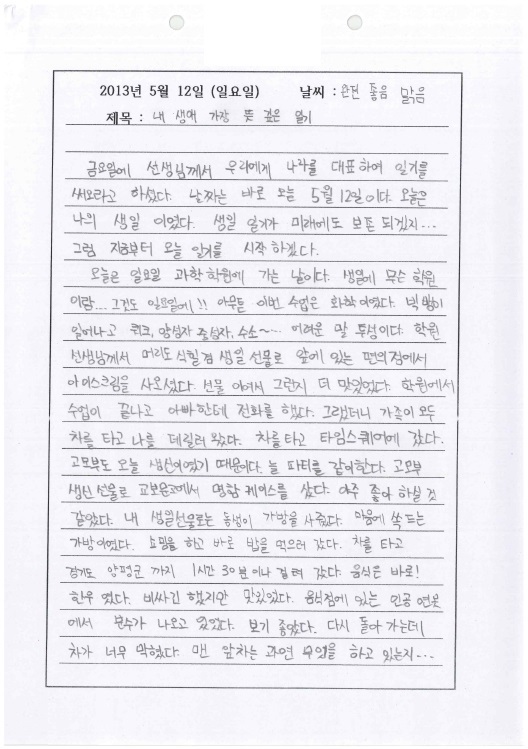 2013년 5월 12일 (일요일) 날씨 : 완전 좋음 맑음
제목 : 내 생애 가장 뜻 깊은 일기
금요일에 선생님께서 우리에게 나라를 대표하여 일기를
써오라고 하셨다. 날짜는 바로 오늘 5월 12일이다. 오늘은
나의 생일 이였다. 생일 일기가 미래에도 보존 되겠지...
그럼 지금부터 오늘 일기를 시작하겠다.
오늘은 일요일 과학학원에 가는 날이다. 생일에 무슨 학원
이람... 그것도 일요일에!! 아무튼 이번 수업은 화학이였다. 빅뱅이
일어나고 쿼크, 양성자 중성자, 수소~... 어려운 말 투성이다. 학원
선생님께서 머리도 식힐 겸 생일 선물로 앞에 있는 편의점에서
아이스크림을 사오셨다. 선물 이여서 그런지 더 맛있었다. 학원에서
수업이 끝나고 아빠한테 전화를 했다. 그랬더니 가족이 모두
차를 타고 나를 데릴러 왔다. 차를 타고 타임스퀘어에 갔다.
고모부도 오늘 생신이였기 때문이다. 늘 파티를 같이한다. 고모부
생신 선물로 교보문고에서 명함 케이스를 샀다. 아주 좋아 하실 것
같았다. 내 생일선물로는 동생이 가방을 사줬다. 마음에 쏙 드는
가방이였다. 쇼핑을 하고 바로 밥을 먹으러 갔다. 차를 타고
경기도 양평군 까지 1시간 30분이나 걸려 갔다. 음식은 바로!
한우 였다. 비싸긴 했지만 맛있었다. 음식점에 있는 인공 연못
에서 분수가 나오고 있었다. 보기 좋았다. 다시 돌아 가는데
차가 너무 막혔다. 맨 앞차는 과연 무엇을 하고 있는지...